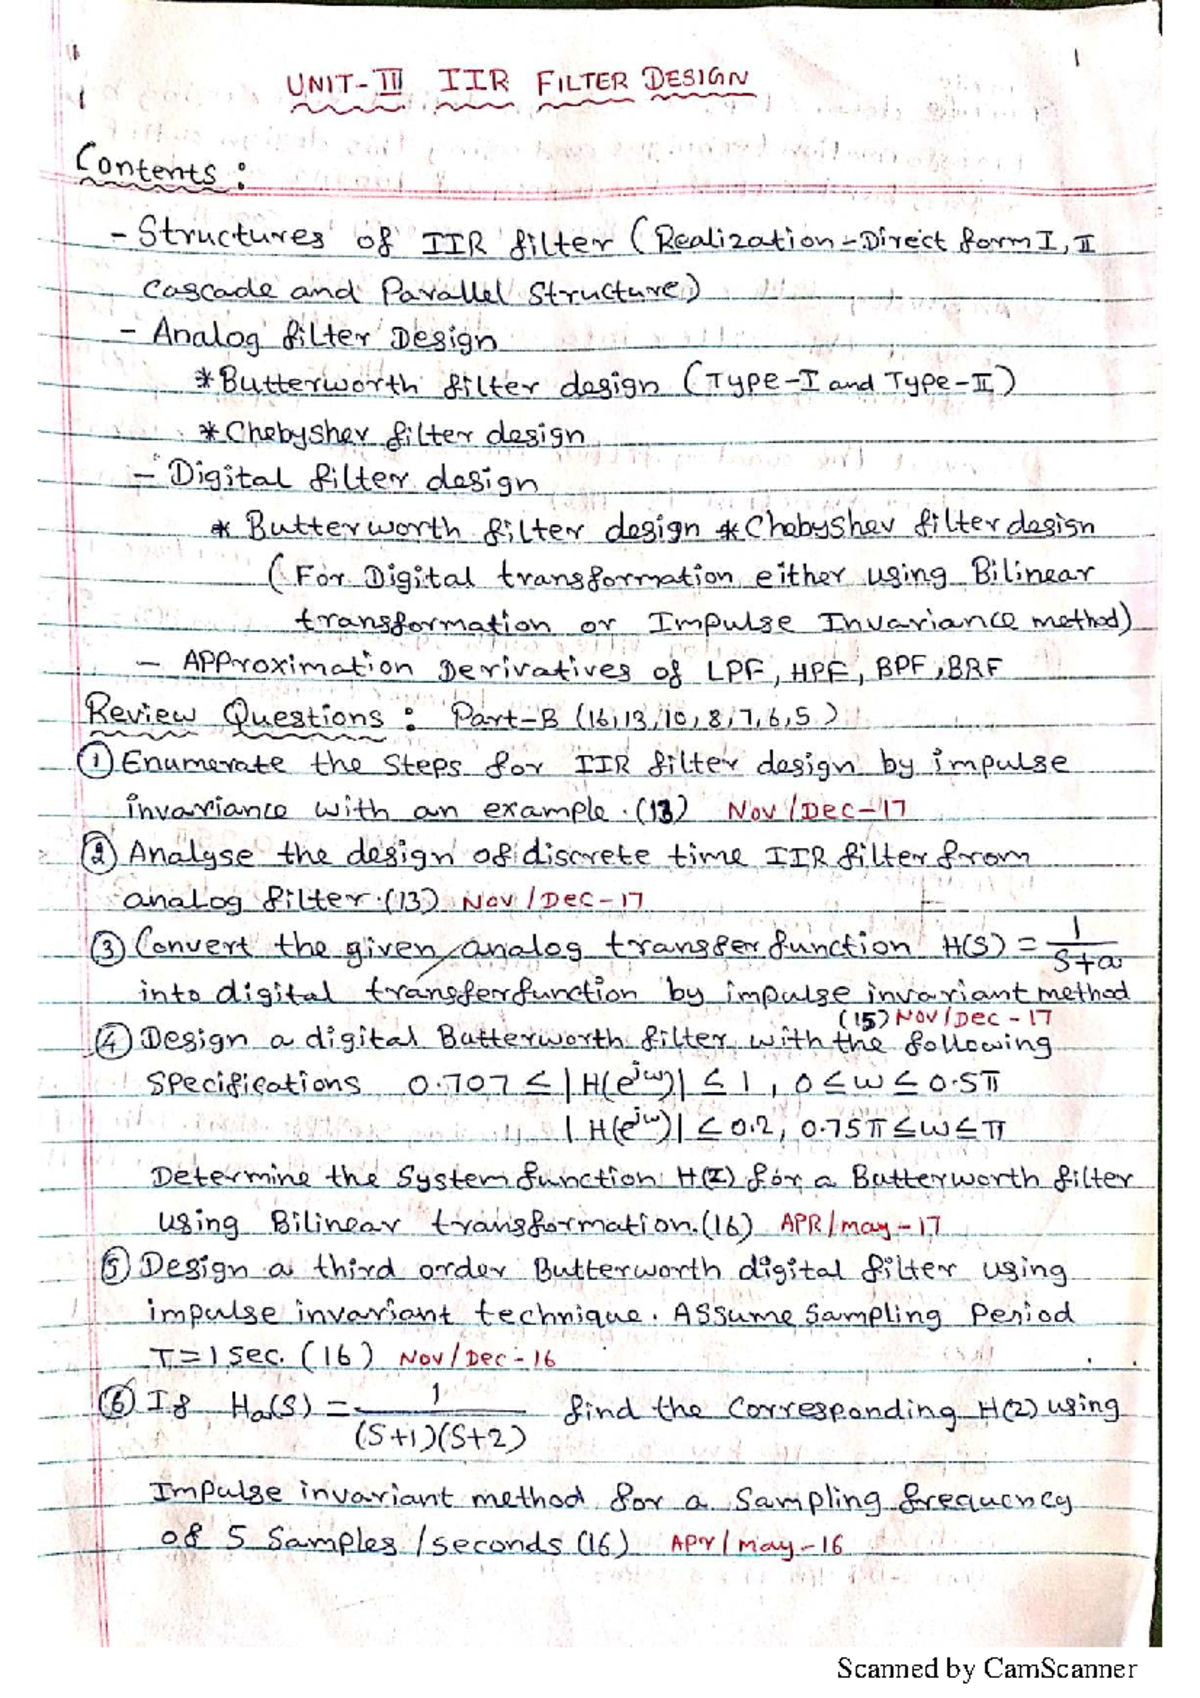 1
UNIT-III IIR FILTER DESIGN
Contents :
- Structures of IIR filter (Realization-Direct form I, II
Cascade and Parallel Structure)
- Analog filter Design
* Butterworth filter design (Type-I and Type-II)
* Chebyshev filter design
- Digital filter design
* Butterworth filter design * Chebyshev filter design
(For Digital transformation either using Bilinear
transformation or Impulse Invariance method)
- Approximation Derivatives of LPF, HPF, BPF, BRF
Review Questions : Part-B (16,13,10,8,7,6,5)
① Enumerate the Steps for IIR filter design by impulse
invariance with an example. (13) Nov/Dec-17
② Analyse the design of discrete time IIR filter from
analog filter. (13) Nov/Dec-17
③ Convert the given analog transfer function H(S) = 1/(S+a)
into digital transfer function by impulse invariant method
(15) Nov/Dec-17
④ Design a digital Butterworth filter with the following
Specifications 0.707 ≤ |H(e^jω)| ≤ 1, 0 ≤ ω ≤ 0.5π
|H(e^jω)| ≤ 0.2, 0.75π ≤ ω ≤ π
Determine the System function H(Z) for a Butterworth filter
using Bilinear transformation. (16) APR/may-17
⑤ Design a third order Butterworth digital filter using
impulse invariant technique. Assume Sampling Period
T=1 sec. (16) Nov/Dec-16
⑥ If Ha(S) = 1/((S+1)(S+2)) find the Corresponding H(Z) using
Impulse invariant method for a Sampling frequency
of 5 Samples/seconds (16) Apr/may-16
Scanned by CamScanner